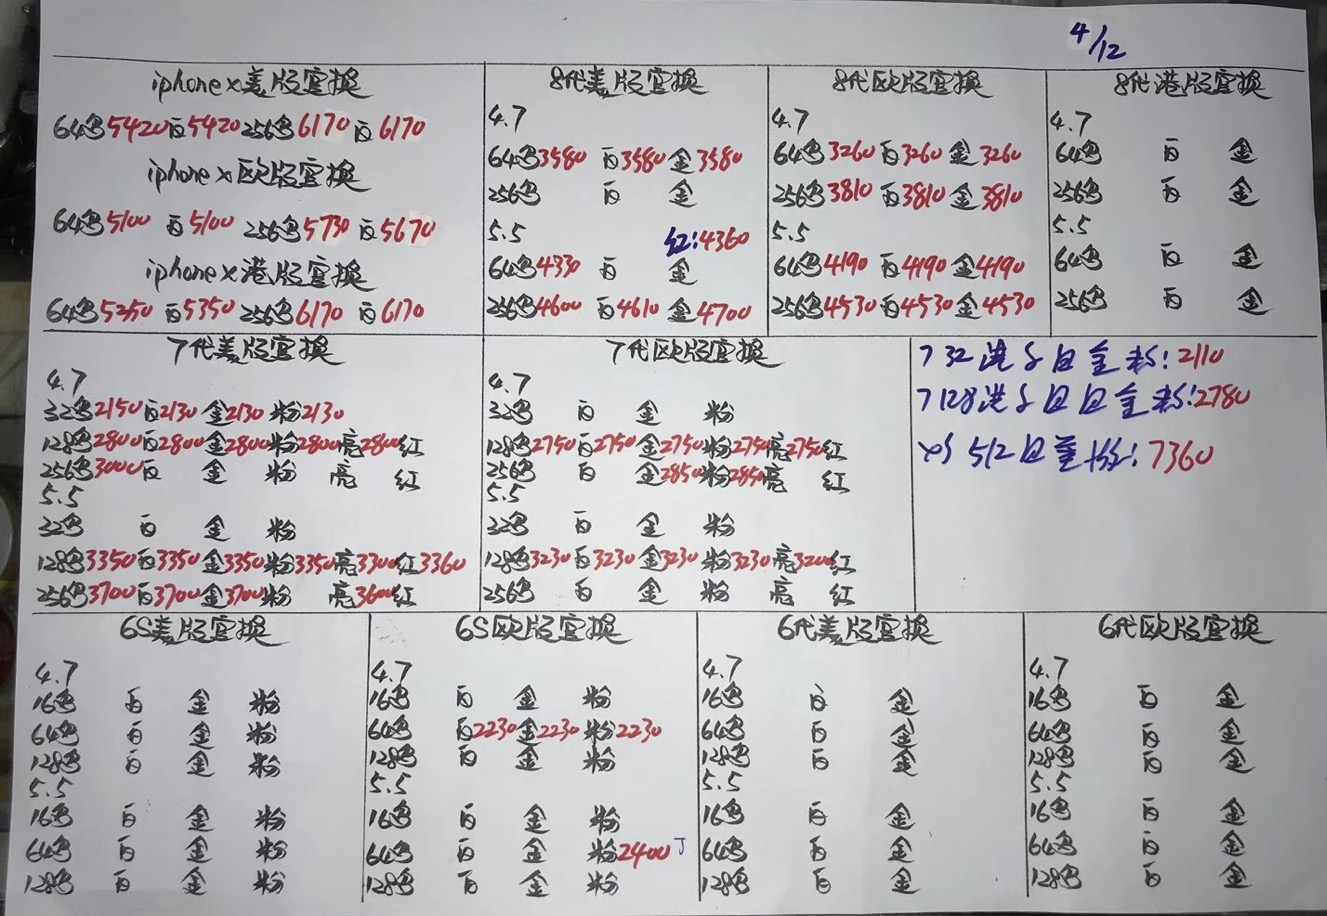 4/12
iphone x美版官换
64黑5420白5420 256黑6170白6170
iphone x欧版官换
64黑5100 白5100 256黑5730 白5670
iphone x港版官换
64黑5250白5350 256黑6170 白6170
8代美版官换
4.7
64黑3580 白3580 金3580
256黑 白 金
5.5 红:4360
64黑4330 白 金
256黑4600白4610 金4700
8代欧版官换
4.7
64黑3260白3260 金3260
256黑3810 白3810 金3810
5.5
64黑4190 白4190 金4190
256黑4530白4530 金4530
8代港版官换
4.7
64黑 白 金
256黑 白 金
5.5
64黑 白 金
256黑 白 金
7代美版官换
4.7
32黑2150白2130 金2130 粉2130
128黑2800白2800金2800粉2800亮2800红
256黑3000白 金 粉 亮 红
5.5
32黑 白 金 粉
128黑3350白3350金3350粉3350亮3300红3360
256黑3700白3700金3700粉 亮3600红
7代欧版官换
4.7
32黑 白 金 粉
128黑2750白2750金2750粉2750亮2750红
256黑 白 金2850粉2850亮 红
5.5
32黑 白 金 粉
128黑3230白3230 金3230 粉3230亮3200红
256黑 白 金 粉 亮 红
7 32 港 白 金 粉:2110
7 128港 金 粉:2780
xs 512 :7360
6S美版官换
4.7
16黑 白 金 粉
64黑 白 金 粉
128黑 白 金 粉
5.5
16黑 白 金 粉
64黑 白 金 粉
128黑 白 金 粉
6S欧版官换
4.7
16黑 白 金 粉
64黑 白2230金2230 粉2230
128黑 白 金 粉
5.5
16黑 白 金 粉
64黑 白 金 粉2400
128黑 白 金 粉
6代美版官换
4.7
16黑 白 金
64黑 白 金
128黑 白 金
5.5
16黑 白 金
64黑 白 金
128黑 白 金
6代欧版官换
4.7
16黑 白 金
64黑 白 金
128黑 白 金
5.5
16黑 白 金
64黑 白 金
128黑 白 金